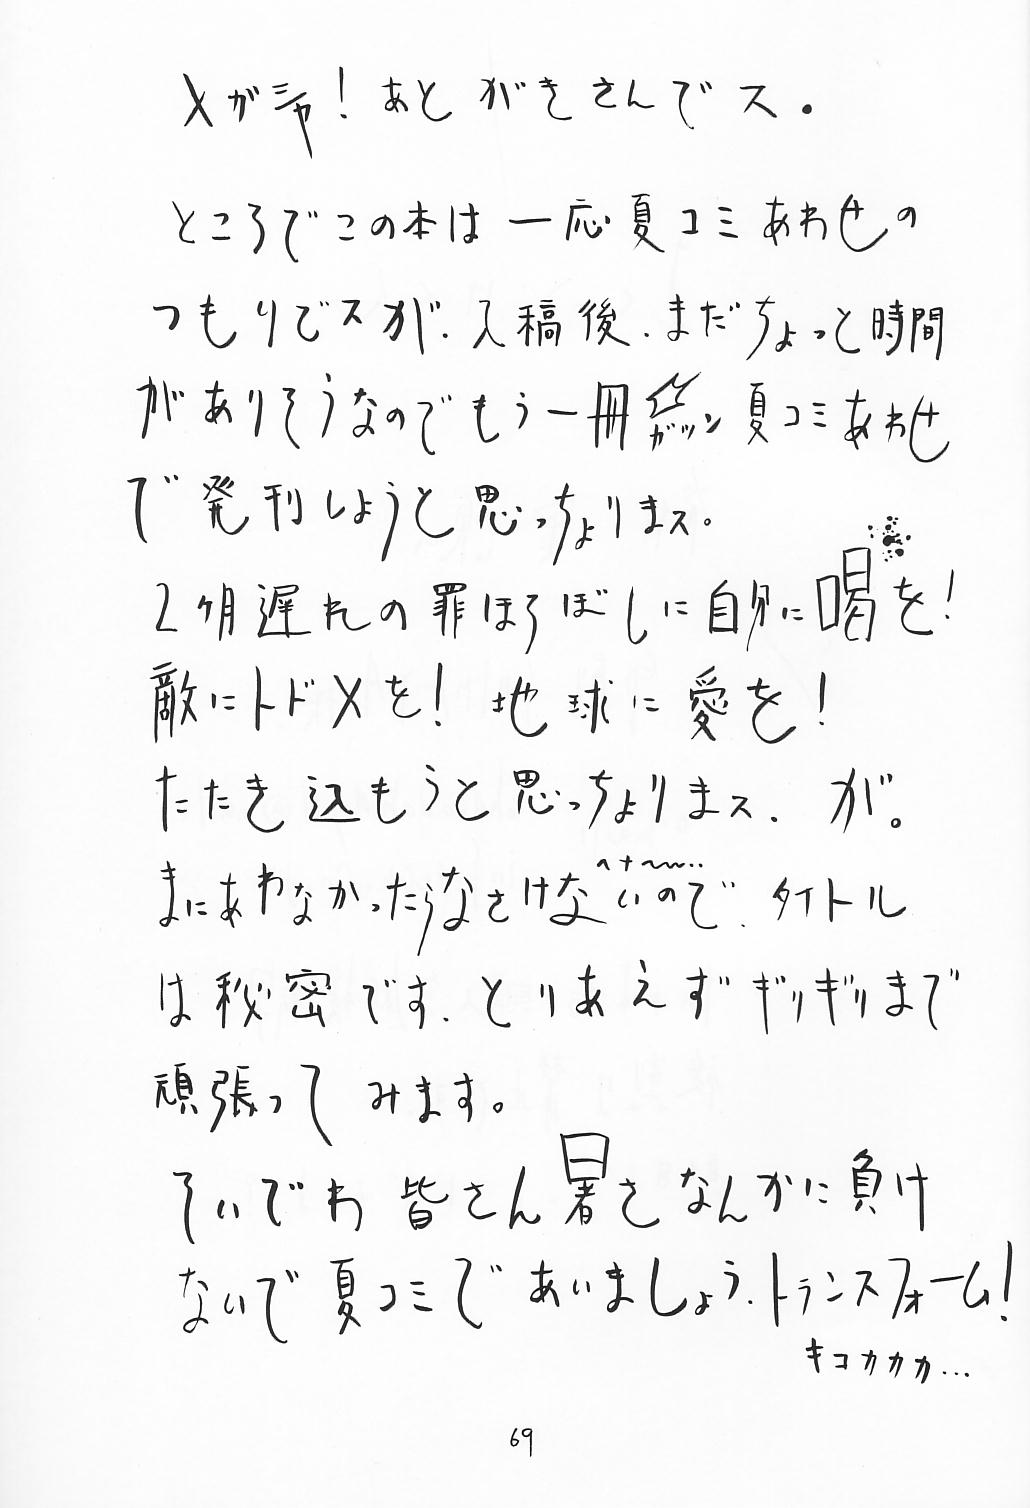 メガシャ!あとがきさんでス.
ところでこの本は一応夏コミあわせの
つもりでスが、入稿後、まだちょっと時間
がありそうなのでもう一冊ガッツン夏コミあわせ
で発刊しようと思っちょりまス。
2ヶ月遅れの罪ほろぼしに自分に喝を!
敵にトドメを!地球に愛を!
たたき込もうと思っちょりまス、が。
まにあわなかったらなさけないので、タイトル
へナ〜..
は秘密です、とりあえずギリギリまで
頑張ってみます。
そいでわ皆さん暑さなんかに負け
ないで夏コミであいましょう、トランスフォーム!
キコカカカ...
69